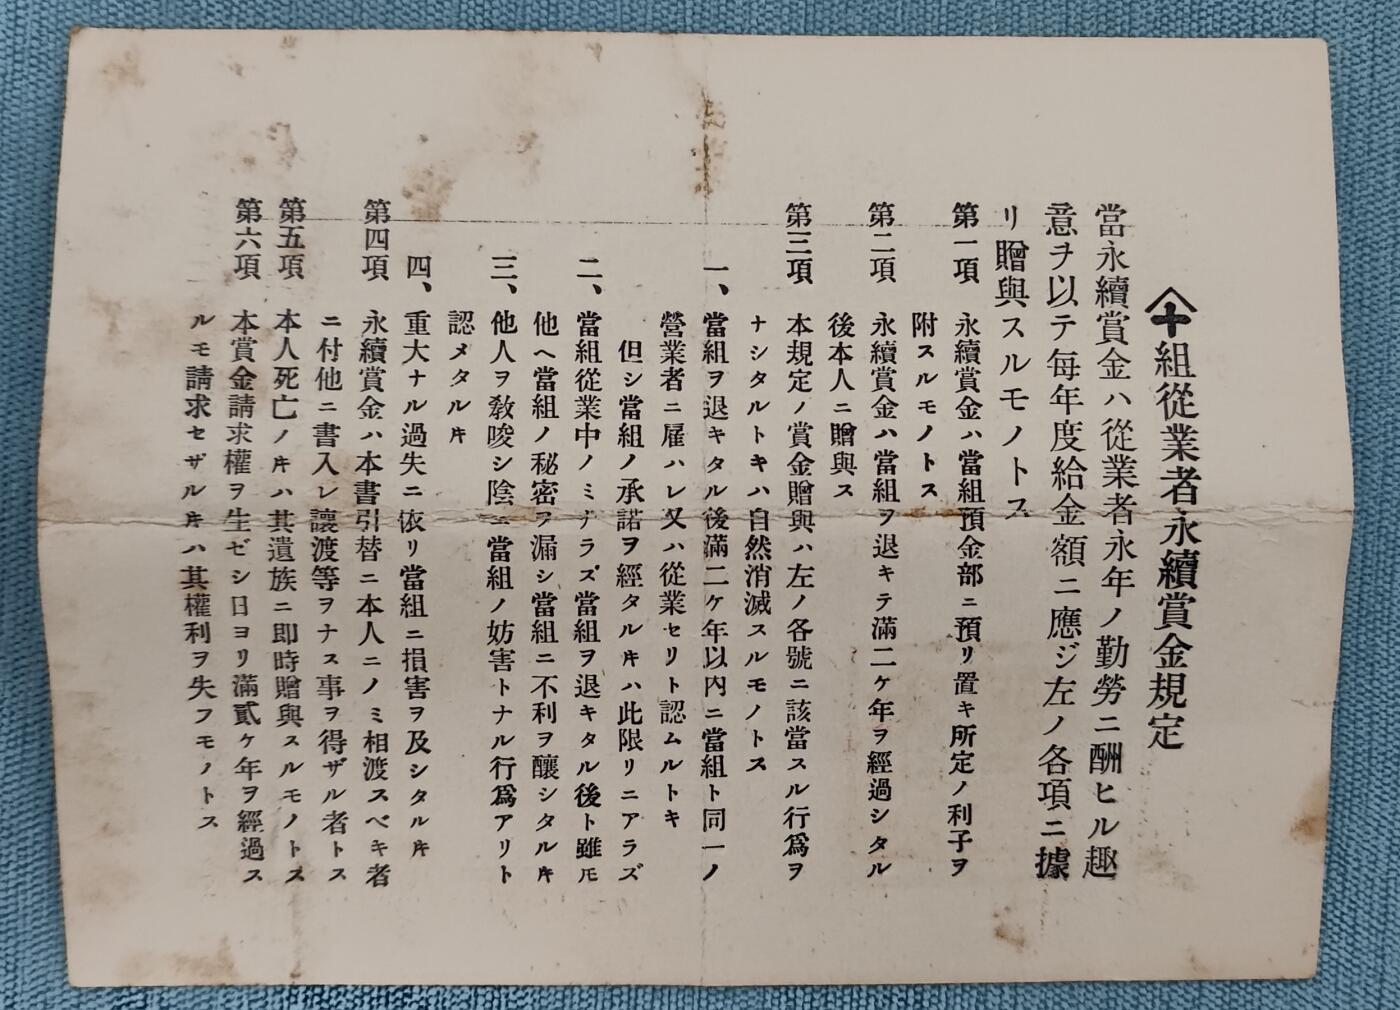 𠆢十組從業者永續賞金規定
當永續賞金ハ從業者永年ノ勤勞ニ酬ヒル趣
意ヲ以テ每年度給金額ニ應ジ左ノ各項ニ據
リ贈與スルモノトス
第一項 永續賞金ハ當組預金部ニ預リ置キ所定ノ利子ヲ
附スルモノトス
第二項 永續賞金ハ當組ヲ退キテ滿二ケ年ヲ經過シタル
後本人ニ贈與ス
第三項 本規定ノ賞金贈與ハ左ノ各號ニ該當スル行爲ヲ
ナシタルトキハ自然消滅スルモノトス
一、當組ヲ退キタル後滿二ケ年以內ニ當組ト同一ノ
營業者ニ雇ハレ又ハ從業セリト認ムルトキ
但シ當組ノ承諾ヲ經タル𪜈ハ此限リニアラズ
二、當組從業中ノミナラズ當組ヲ退キタル後ト雖モ
他ヘ當組ノ秘密ヲ漏シ當組ニ不利ヲ釀シタル𪜈
三、他人ヲ敎唆シ陰ニ當組ノ妨害トナル行爲アリト
認メタル𪜈
四、重大ナル過失ニ依リ當組ニ損害ヲ及シタル𪜈
第四項 永續賞金ハ本書引替ニ本人ニノミ相渡スベキ者
ニ付他ニ書入レ讓渡等ヲナス事ヲ得ザル者トス
第五項 本人死亡ノ𪜈ハ其遺族ニ即時贈與スルモノトス
第六項 本賞金請求權ヲ生ゼシ日ヨリ滿貳ケ年ヲ經過ス
ルモ請求セザル𪜈ハ其權利ヲ失フモノトス